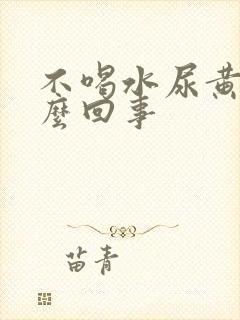 不喝水尿黄
麼回事
苗青